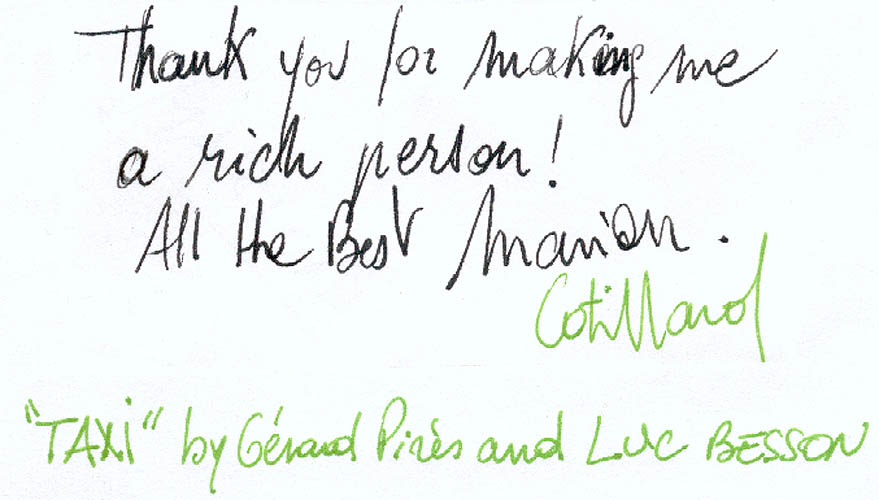 Thank you for making me
a rich person!
All the Best Marion.
Cotillard
"TAXi" by Gérard Pirès and LUC BESSON